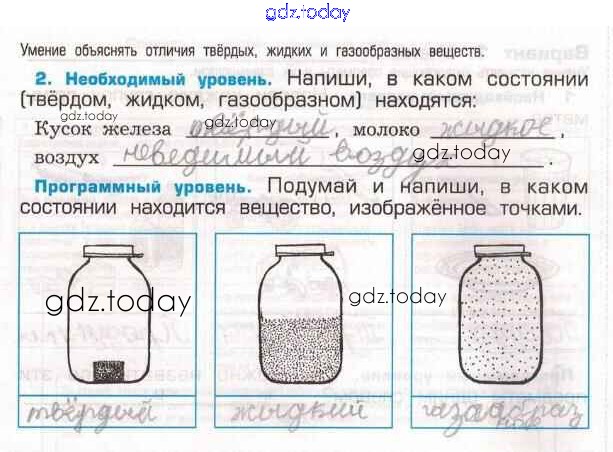 gdz.today
Умение объяснять отличия твёрдых, жидких и газообразных веществ.
2. Необходимый уровень. Напиши, в каком состоянии
(твёрдом, жидком, газообразном) находятся:
gdz.today gdz.today
Кусок железа твёрдый, молоко жидкое,
воздух неведимый воздух.
gdz.today
Программный уровень. Подумай и напиши, в каком
состоянии находится вещество, изображённое точками.
gdz.today gdz.today
твёрдый жидкий газообраз
ное
gdz.today